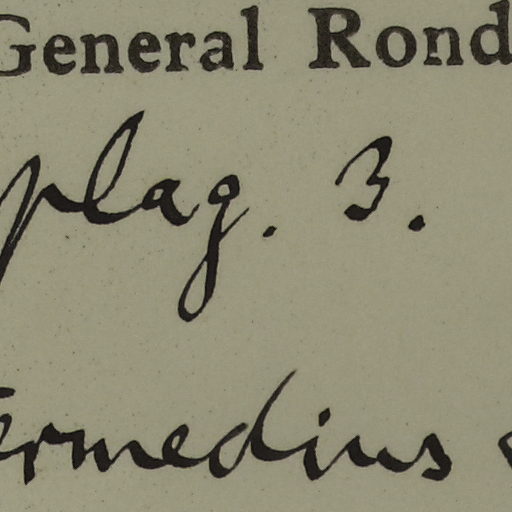 General Rond
plag. 3.
termedius